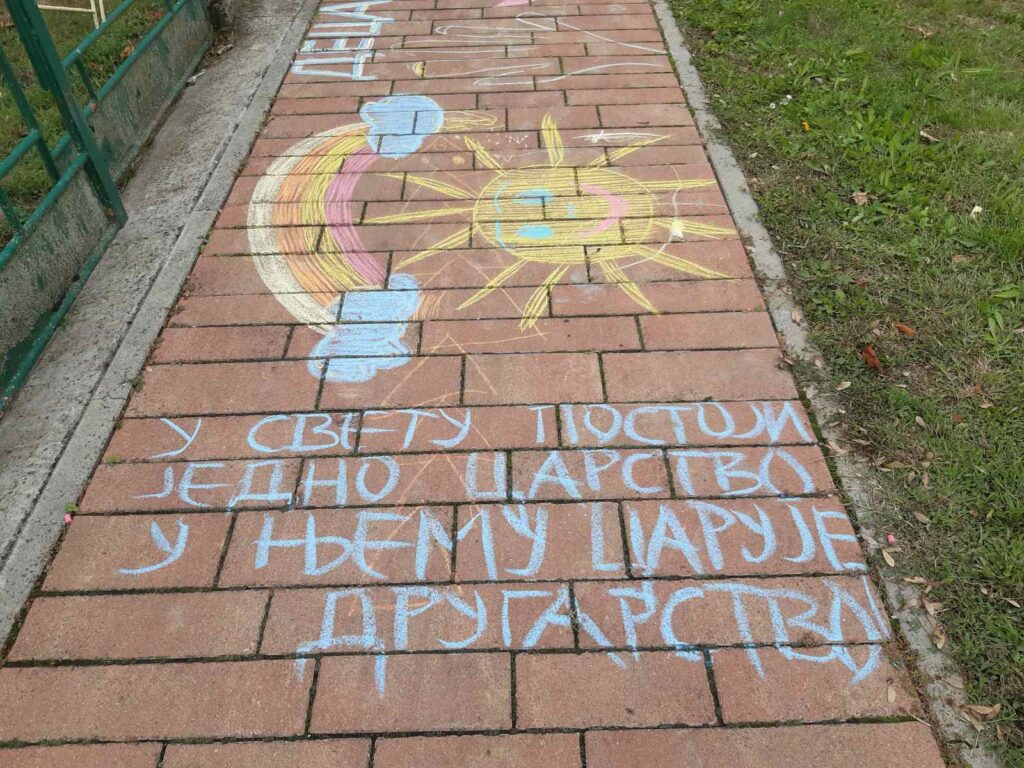 ДЕЦА
У СВЕТУ ПОСТОЈИ
ЈЕДНО ЦАРСТВО
У ЊЕМУ ЦАРУЈЕ
ДРУГАРСТВО